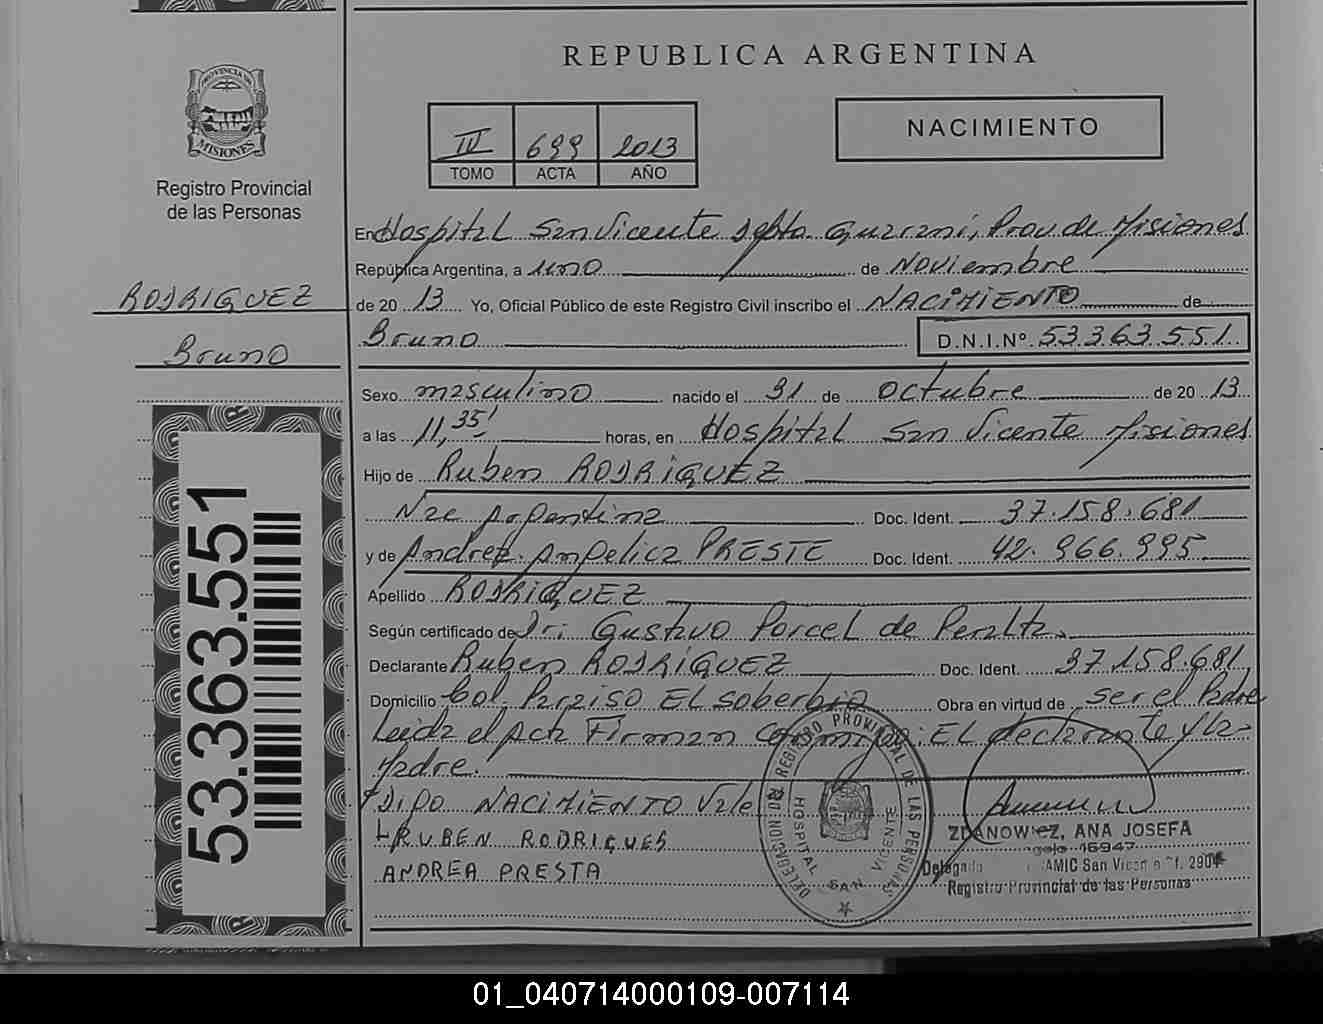 REPUBLICA ARGENTINA
PROVINCIA DE
MISIONES
Registro Provincial
de las Personas
III 699 2013
TOMO ACTA AÑO
NACIMIENTO
En Hospital San Vicente Depto. Guarani, Prov de Misiones
República Argentina, a uno de Noviembre
RODRIGUEZ
de 20 13 Yo, Oficial Público de este Registro Civil inscribo el NACIMIENTO de
Bruno
Bruno D.N.I.Nº 53.363.551
Sexo masculino nacido el 31 de octubre de 20 13
a las 11,35' horas, en Hospital San Vicente Misiones
Hijo de Ruben RODRIGUEZ
Nac Argentina Doc. Ident. 37.158.681
y de Andrea Angelica PRESTE Doc. Ident. 42.966.995
Apellido RODRIGUEZ
Según certificado de Dr: Gustavo Porcel de Peralta
Declarante Ruben RODRIGUEZ Doc. Ident. 37.158.681
Domicilio Col. Paraiso El soberbio Obra en virtud de ser el Padre
Leida el Acta Firman conmigo: El declarante y la
Madre.
Digo NACIMIENTO Vale
RUBEN RODRIGUES
ANDREA PRESTA
53.363.551
DELEGACION DEL REGISTRO PROVINCIAL DE LAS PERSONAS
HOSPITAL SAN VICENTE
ZDANOWICZ, ANA JOSEFA
Legajo 16947
Delegada CAMIC San Vicente Of. 2904
Registro Provincial de las Personas
01_040714000109-007114